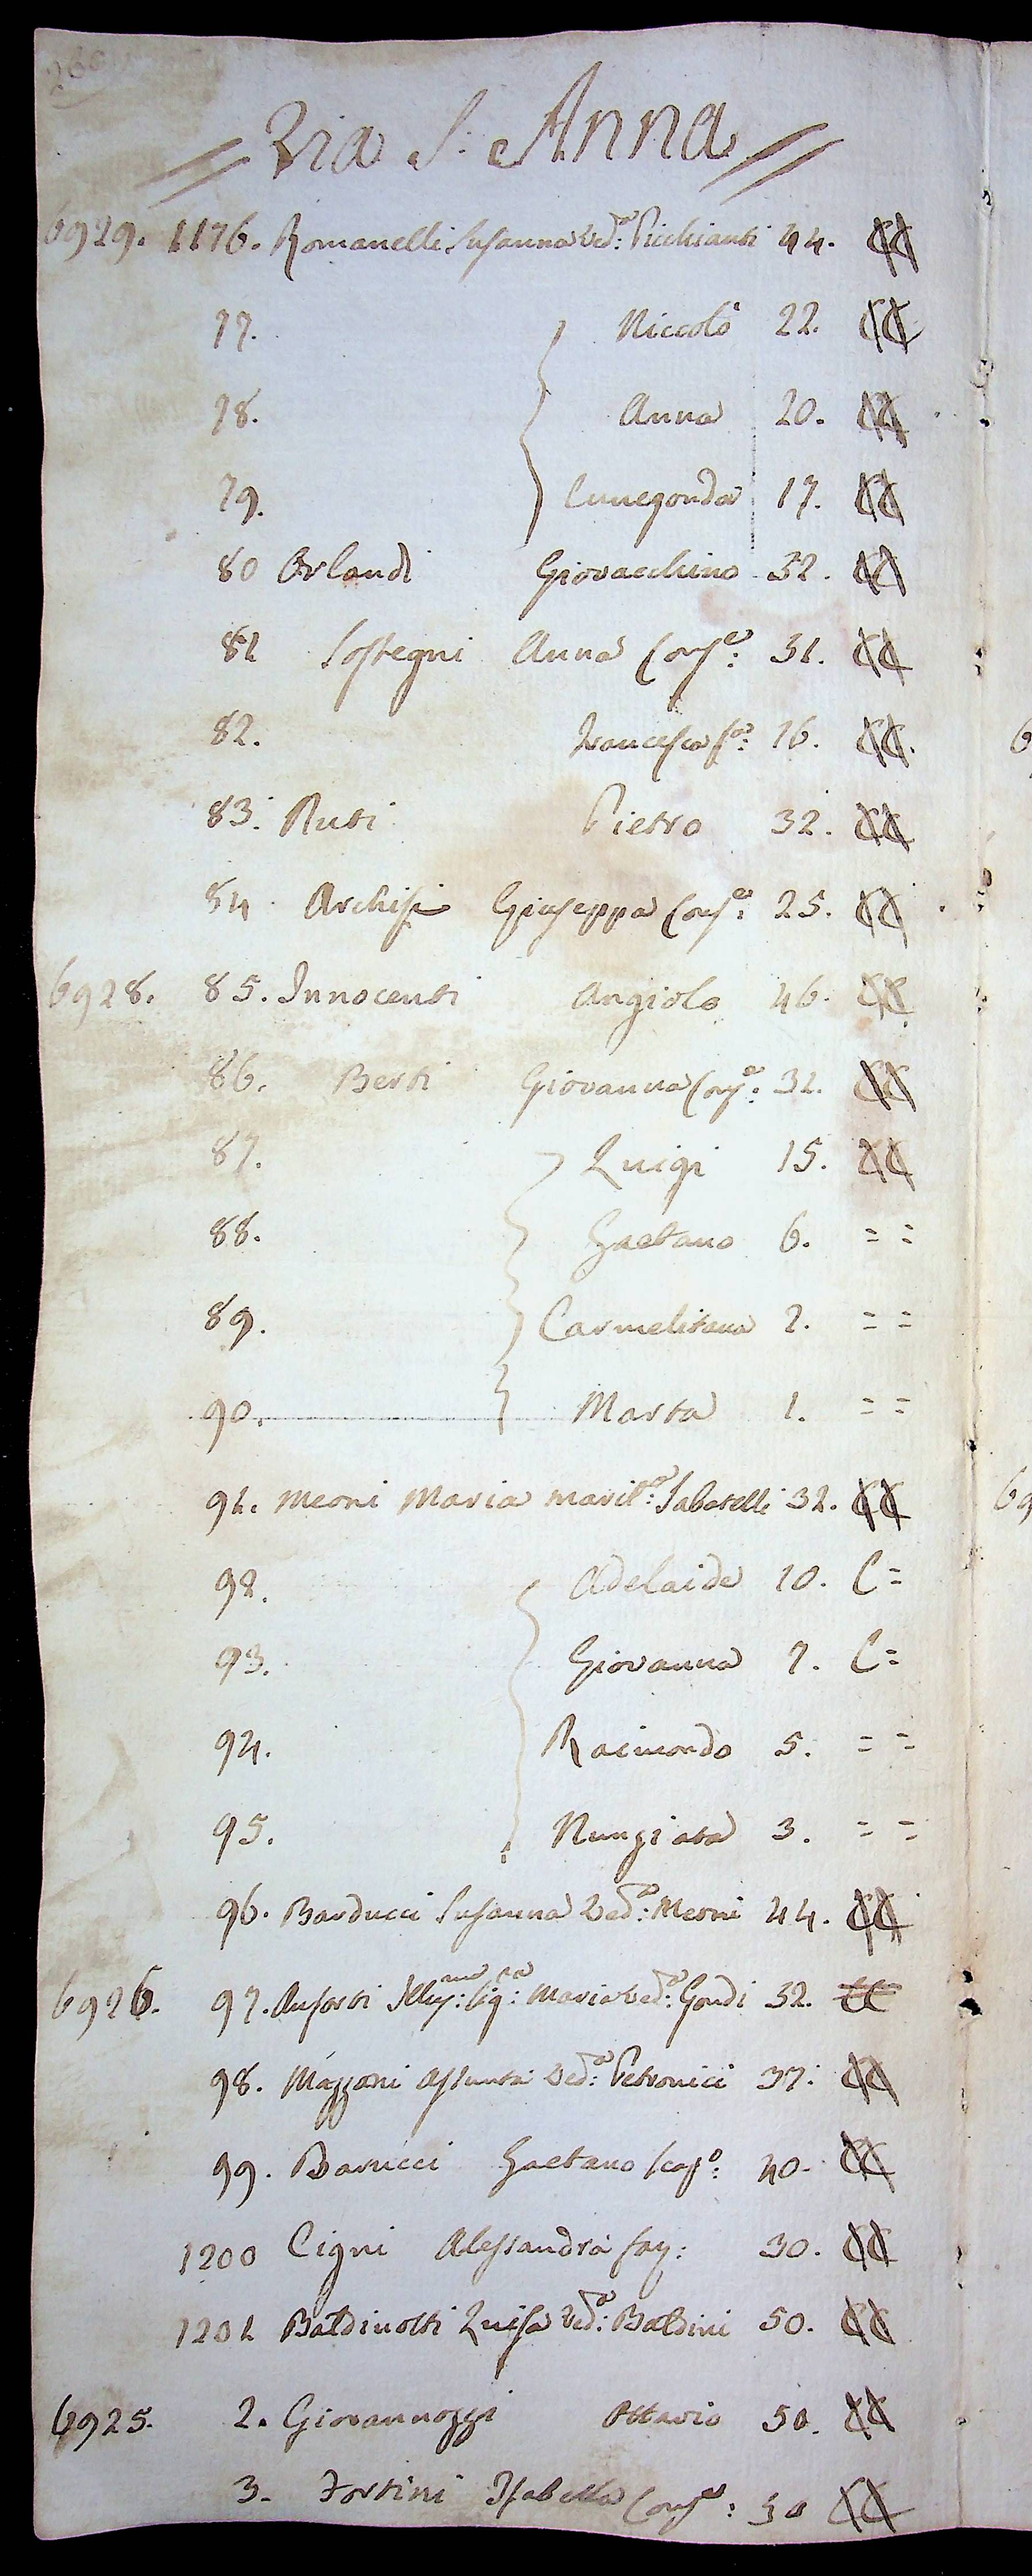 266
= Via S: Anna =
6929. 1176. Romanelli Susanna Ved:a Picchianti 44. CC
77. Niccolò 22. CC
78. Anna 20. CC
79. Cunegonda 17. CC
80 Orlandi Giovacchino 32. CC
81 Sostegni Anna Cons:e 31. CC
82. Francesca fa: 16. CC.
83. Ruti Pietro 32. CC
84. Giuseppa Cons:e 25. CC
6928. 85. Innocenti Angiolo 46. CC
86. Berti Giovanna Cons:e 32. CC
87. Luigi 15. CC
88. Gaetano 6. = =
89. Carmelitana 2. = =
90. Marta 1. = =
91. Meoni Maria marit:a Sabatelli 32. CC
92. Adelaide 10. C =
93. Giovanna 7. C =
94. Raimondo 5. = =
95. Nunziata 3. = =
96. Barducci Susanna Ved:a Meoni 44. CC
6926. 97. Anforti Sig:ra Maria Ved:a Gondi 32. CC
98. Mazzoni Assunta Ved:a Petronici 37. CC
99. Barucci Gaetano scap:o 40. CC
1200 Cigni Alessandra 30. CC
1201 Baldinotti Luisa Ved:a Baldini 50. CC
6925. 2. Giovannozzi Ottavio 50. CC
3. Fortini Isabella Cons:e 50 CC
6
69